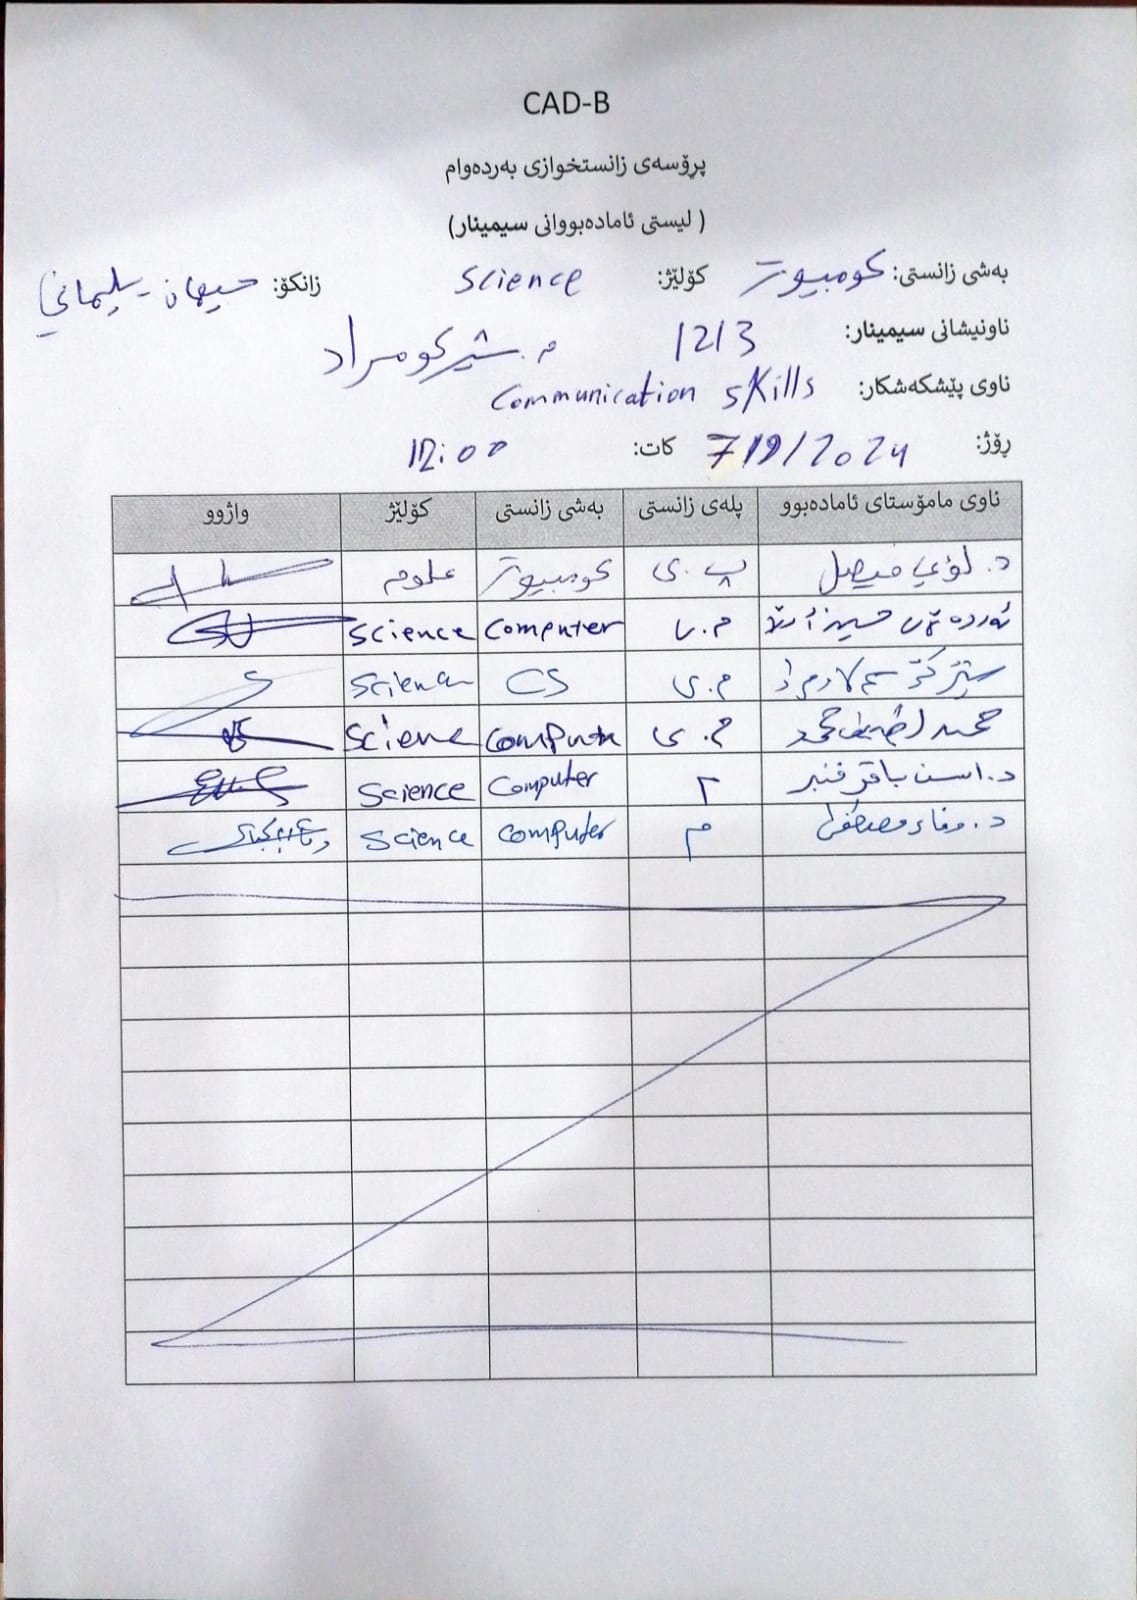 CAD-B
پڕۆسەی زانستخوازی بەردەوام
( لیستی ئامادەبووانی سیمینار)
بەشی زانستی: کومبیوتر کۆلێژ: Science زانکۆ: جیهان - سلیماني
ناونیشانی سیمینار: 1213 م. شیرکو مراد
ناوی پێشکەشکار: Communication skills
ڕۆژ: 7/9/2024 کات: 12:00
ناوی مامۆستای ئامادەبوو پلەی زانستی بەشی زانستی کۆلێژ واژوو
د. لؤي فيصل پ. ی کومبیوتر علوم
حسين م. ی Computer Science
م. ی CS Science
محمد لطيف محمد م. ی Computer Science
د. باقر قنبر م Computer Science
د. وفاء مصطفى م Computer Science